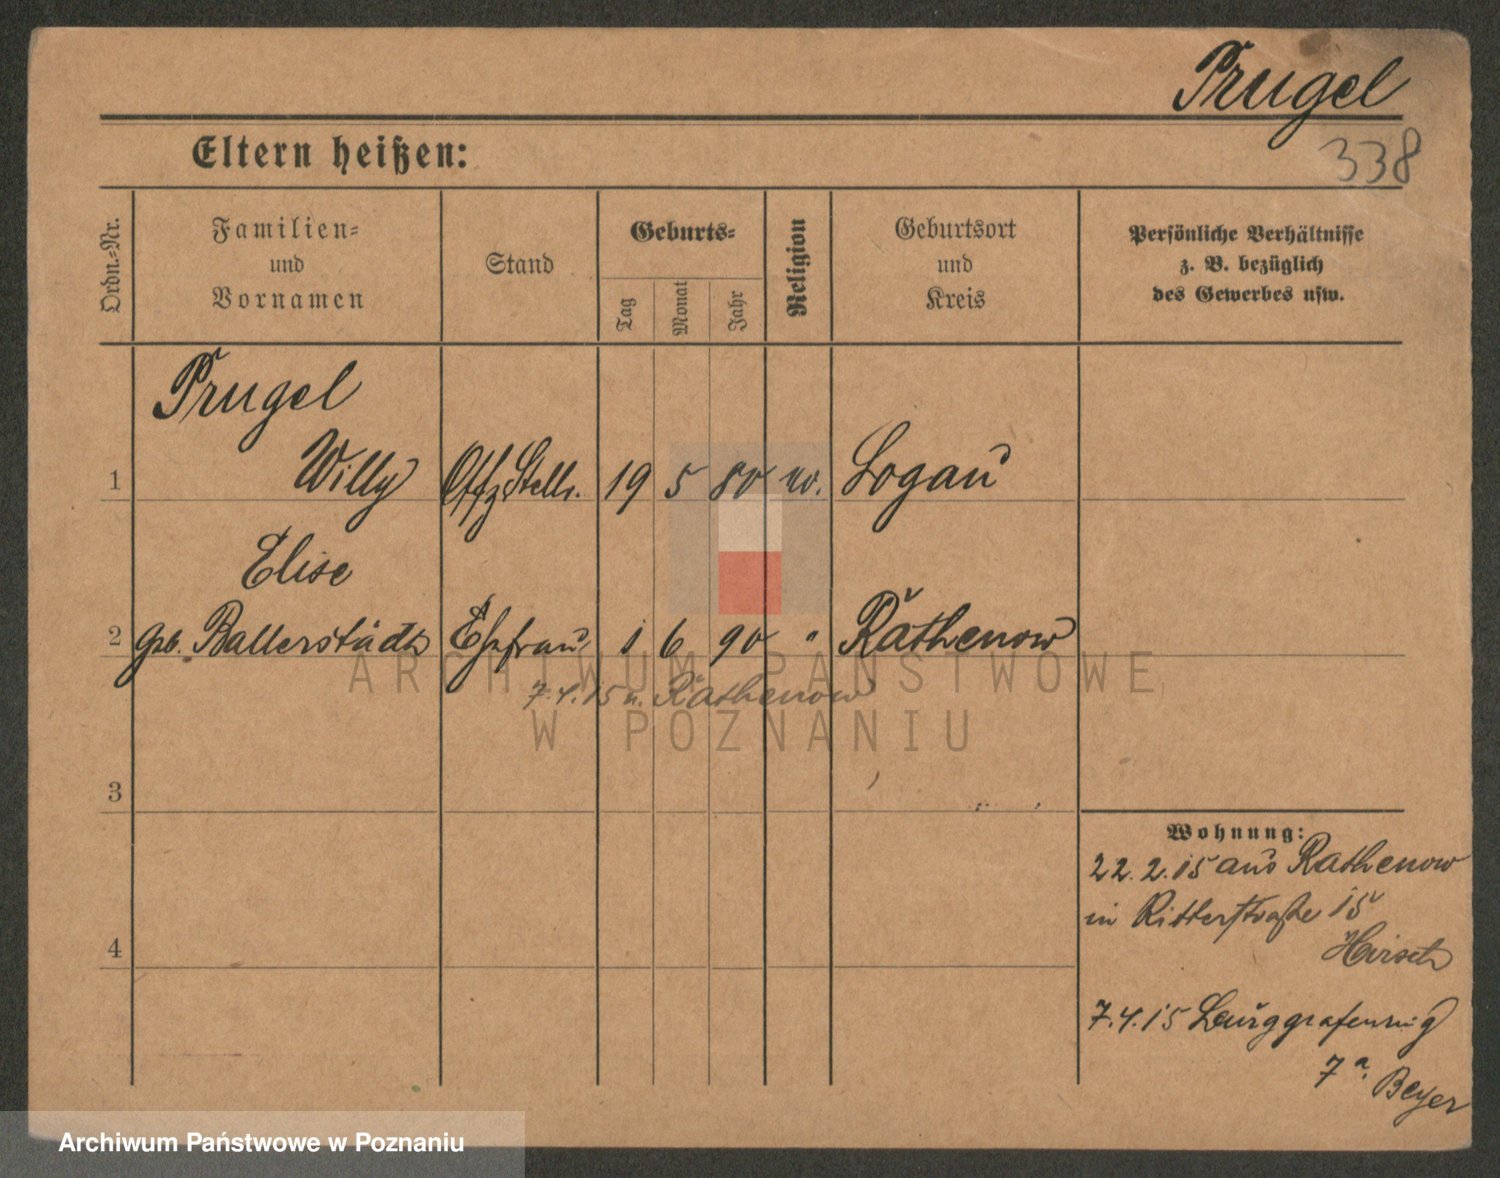 Prugel
338
Eltern heißen:
Ordn.-Nr.
Familien-
und
Vornamen
Stand
Geburts-
Tag
Monat
Jahr
Religion
Geburtsort
und
Kreis
Persönliche Verhältnisse
z. B. bezüglich
des Gewerbes usw.
Prugel
1 Willy Offz Stellv. 19 5 80 Logau
Elise
2 geb. Ballerstädt Ehefrau 1 6 90 " Rathenow
7.4.15 n. Rathenow
ARCHIWUM PAŃSTWOWE
W POZNANIU
3
Wohnung:
22.2.15 aus Rathenow
in Ritterstraße 15
Hirsch
4
7.4.15
7a. Beyer
Archiwum Państwowe w Poznaniu